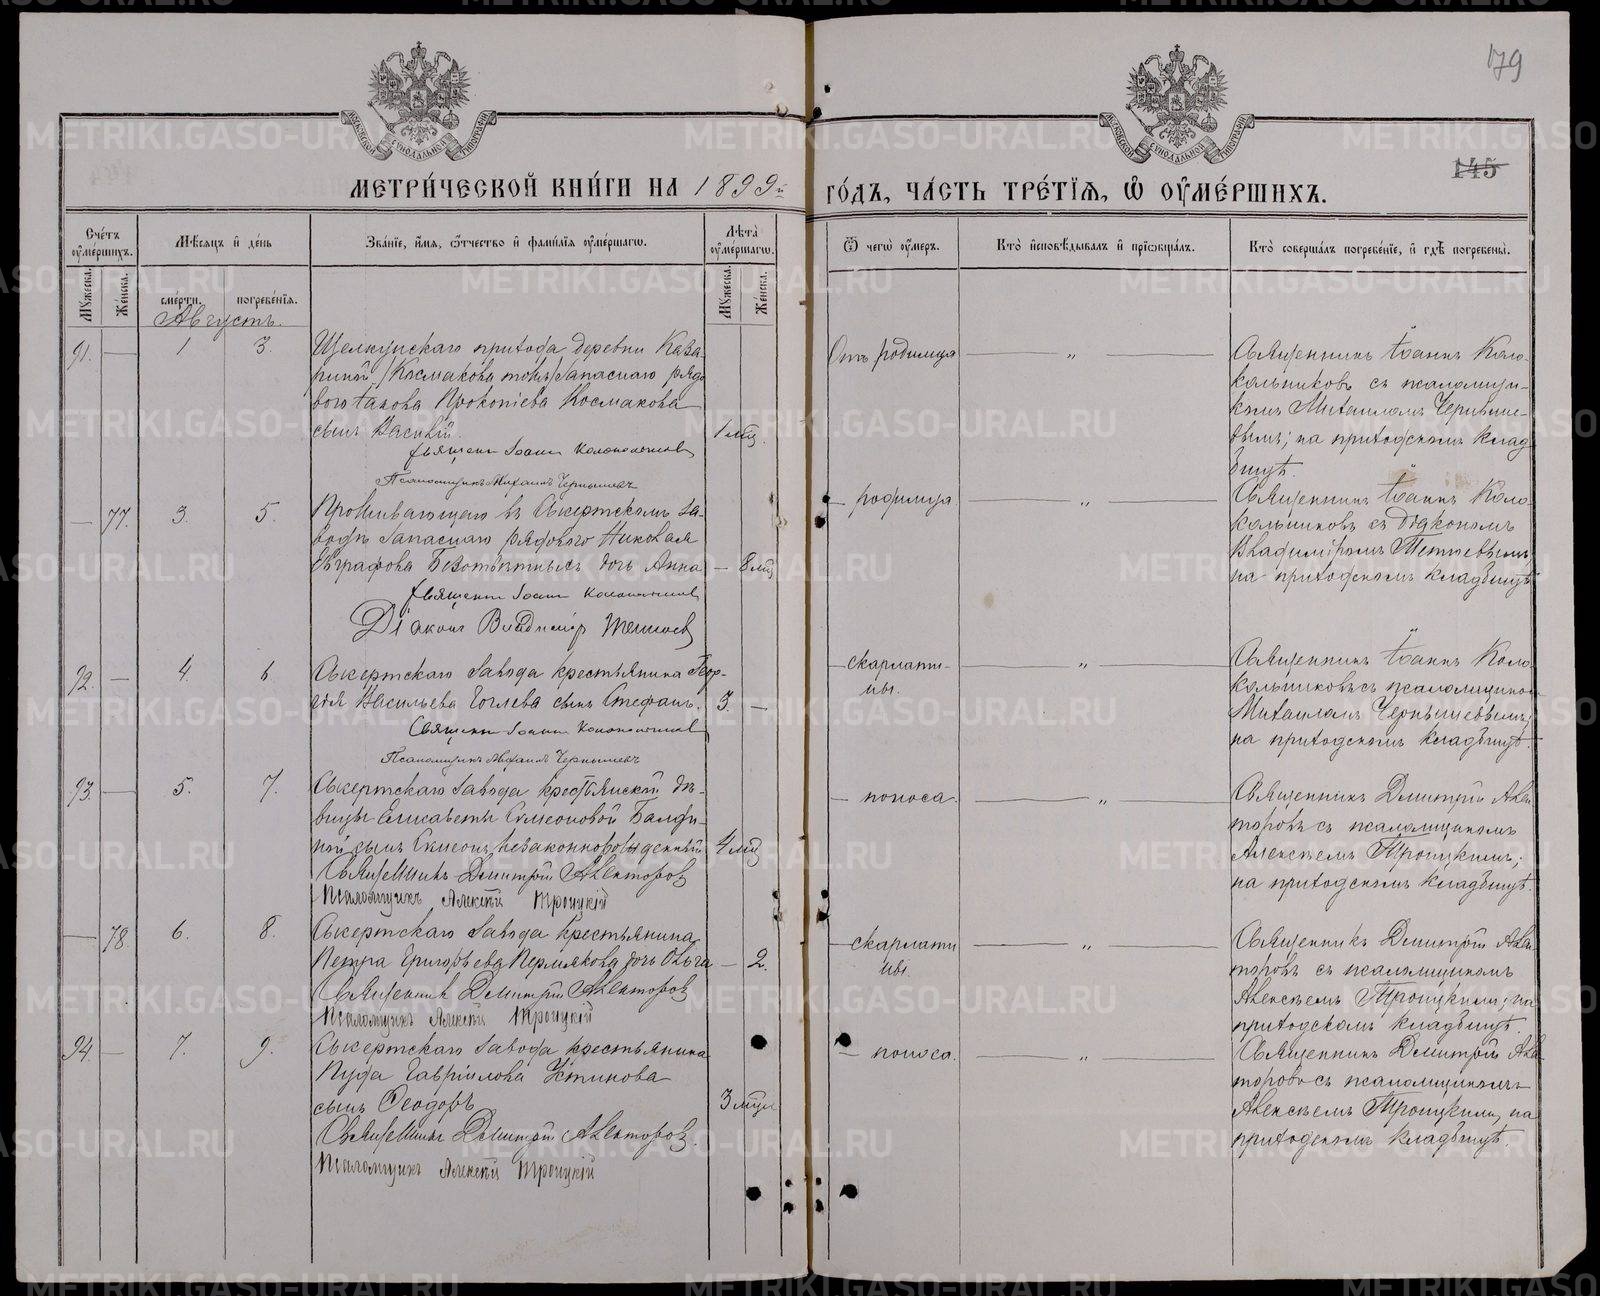 179
145
МЕТРИ́ЧЕСКОЙ КНИ́ГИ НА 1899й ГО́ДЪ, ЧА́СТЬ ТРЕ́ТІЯ, Ѡ ОУМЕ́РШИХЪ.
Сче́тъ оуме́ршихъ.
Мѣ́сяцъ и де́нь
Зва́ніе, и́мя, ѻ́тчество и фами́лія оуме́ршагѡ.
Лѣ́та оуме́ршагѡ.
Ѿ чегѡ̀ оу́меръ.
Кто̀ исповѣ́дывалъ и пріѡбща́лъ.
Кто̀ соверша́лъ погребе́ніе, и гдѣ̀ погребены̀.
Мꙋ́жеска.
Же́нска.
сме́рти.
погребе́нія.
Мꙋ́жеска.
Же́нска.
Августъ.
91. — 1 3. Щелкунскаго прихода деревни Каза-
риной /Космакова тожъ/ запаснаго рядо
вого Іакова Прокопіева Космакова
сынъ Василій. 1 мѣс.
Священ Іоаннъ Колокольниковъ
Псаломщикъ Михаилъ Чернышевъ
Отъ родимца — „ —
Священникъ Іоаннъ Коло-
кольниковъ съ псаломщи-
комъ Михаиломъ Черныше-
вымъ; на приходскомъ клад
бищѣ.
— 77. 3. 5. Проживающаго въ Сысертскомъ за-
водѣ запаснаго рядового Николая
Евграфова дочь Анна — 8 мѣс
Священ Іоаннъ Колокольниковъ
Діаконъ Владиміръ
— родимца — „ —
Священникъ Іоаннъ Коло-
кольниковъ съ діакономъ
Владиміромъ
на приходскомъ кладбищѣ
92. — 4. 6 Сысертскаго завода крестьянина Геор-
гія Васильева сынъ Стефанъ. 3. —
Священ Іоаннъ Колокольниковъ
Псаломщикъ Михаилъ Чернышевъ
— скарлати-
ны. — „ —
Священникъ Іоаннъ Коло-
кольниковъ съ псаломщикомъ
Михаиломъ Чернышевымъ;
на приходскомъ кладбищѣ.
93. — 5. 7. Сысертскаго завода крестьянской дѣ-
вицы Елисаветы Симеоновой
сынъ Симеонъ незаконнорожденный 4 мѣс
Священникъ Димитрій Авенторовъ
Псаломщикъ Алексѣй Троицкій
— поноса. — „ —
Священникъ Димитрій Авен
торовъ съ псаломщикомъ
Алексѣемъ Троицкимъ;
на приходскомъ кладбищѣ.
— 78. 6. 8. Сысертскаго завода крестьянина
Петра Григорьева Пермякова дочь Ольга — 2.
Священникъ Димитрій Авенторовъ
Псаломщикъ Алексѣй Троицкій
— скарлати
ны. — „ —
Священникъ Димитрій Авен
торовъ съ псаломщикомъ
Алексѣемъ Троицкимъ; на
приходскомъ кладбищѣ.
94 — 7. 9. Сысертскаго завода крестьянина
Пуда Гавріилова Устинова
сынъ Ѳеодоръ 3 мѣсл
Священникъ Димитрій Авенторовъ.
Псаломщикъ Алексѣй Троицкій
— поноса. — „ —
Священникъ Димитрій Авен
торовъ съ псаломщикомъ
Алексѣемъ Троицкимъ, на
приходскомъ кладбищѣ.
METRIKI.GASO-URAL.RU